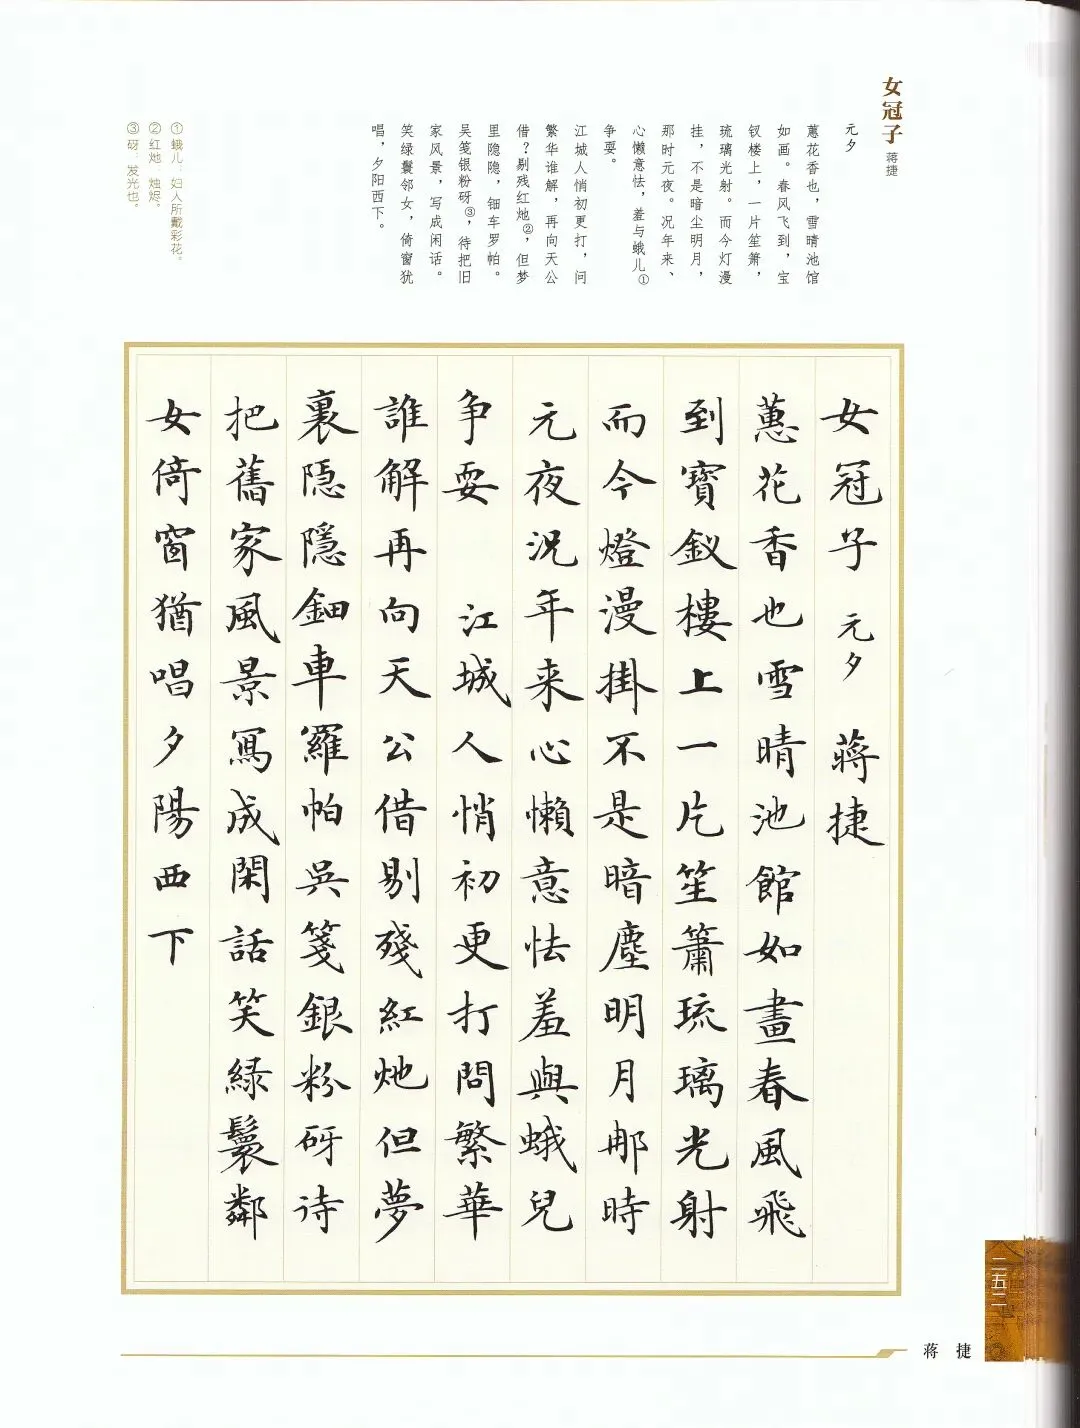 女冠子 蒋捷
元夕
蕙花香也，雪晴池馆
如画。春风飞到，宝
钗楼上，一片笙箫，
琉璃光射。而今灯漫
挂，不是暗尘明月，
那时元夜。况年来、
心懒意怯，羞与蛾儿①
争耍。
江城人悄初更打，问
繁华谁解，再向天公
借？剔残红灺②，但梦
里隐隐，钿车罗帕。
吴笺银粉砑③，待把旧
家风景，写成闲话。
笑绿鬟邻女，倚窗犹
唱，夕阳西下。
①蛾儿：妇人所戴彩花。
②红灺：烛烬。
③砑：发光也。
女冠子 元夕 蔣捷
蕙花香也雪晴池館如畫春風飛
到寶釵樓上一片笙簫琉璃光射
而今燈漫掛不是暗塵明月那時
元夜況年来心懶意怯羞與蛾兒
争耍 江城人悄初更打問繁華
誰解再向天公借剔殘紅灺但夢
裏隐隱鈿車羅帕吳箋銀粉砑待
把舊家風景寫成閑話笑緑鬟鄰
女倚窗猶唱夕陽西下
二五二
蒋捷